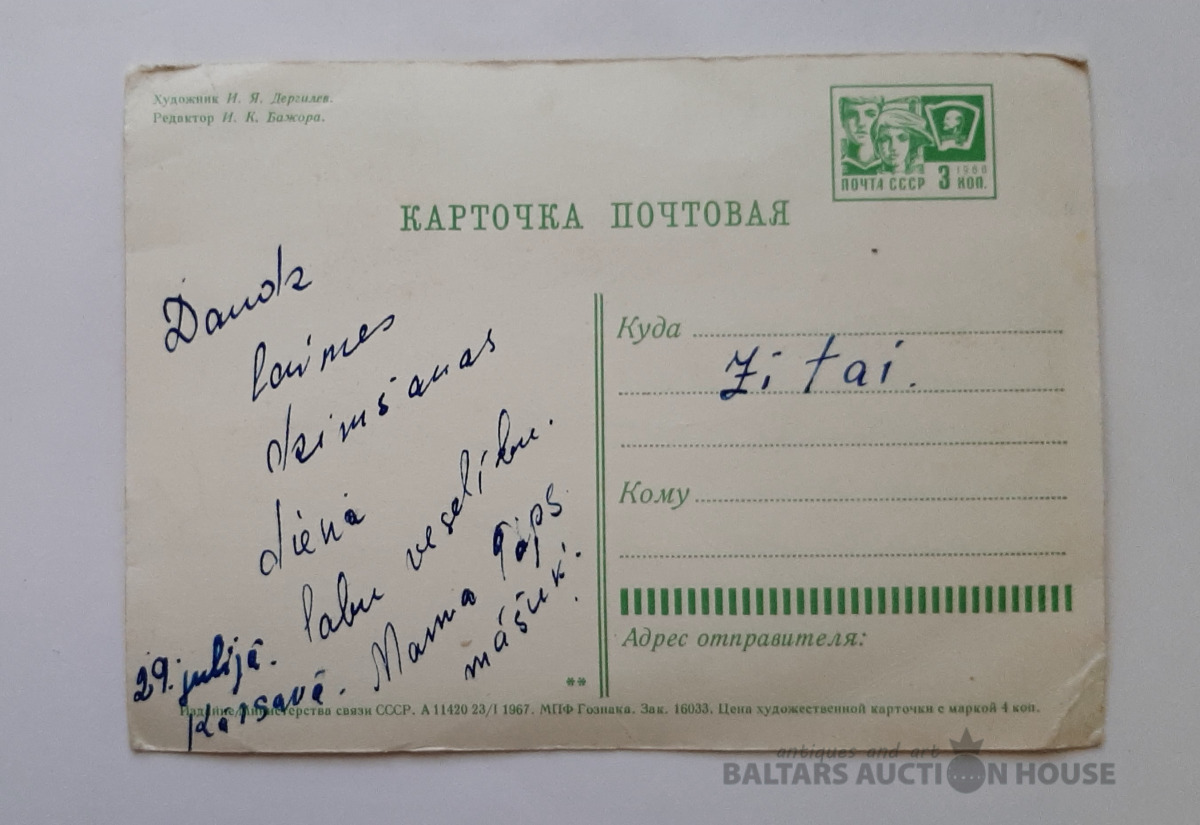 Художник И. Я. Дергилев.
Редактор И. К. Бажора.
ПОЧТА СССР 3 КОП.
1966
КАРТОЧКА ПОЧТОВАЯ
Daudz
laimes
dzimšanas
dienā
labu veselību.
Mamma Paps
māsuk.
29. julijā.
Kārsavā.
Куда
Zitai.
Кому
Адрес отправителя:
**
Издание Министерства связи СССР. А 11420 23/I 1967. МПФ Гознака. Зак. 16033. Цена художественной карточки с маркой 4 коп.
antiques and art
BALTARS AUCTION HOUSE